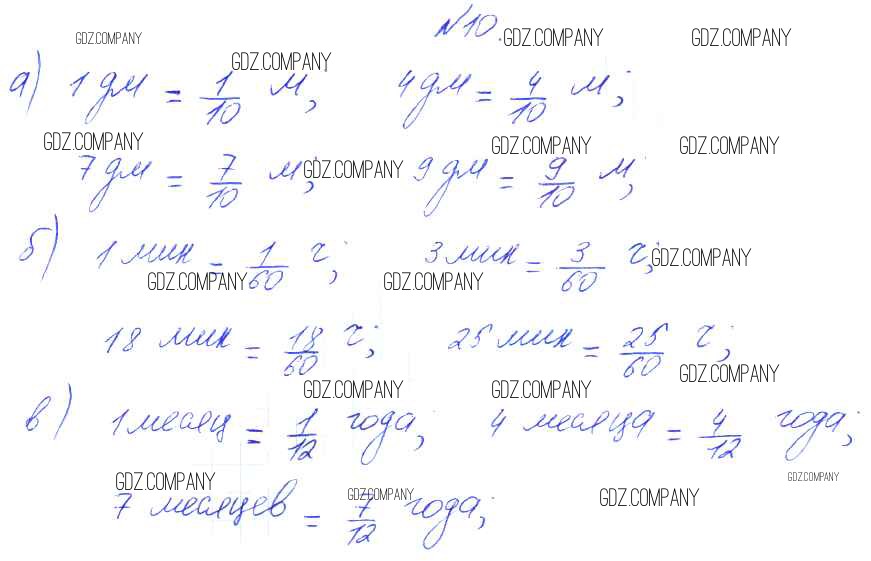 №10.
GDZ.COMPANY GDZ.COMPANY GDZ.COMPANY
GDZ.COMPANY
а) 1 дм = 1/10 м; 4 дм = 4/10 м;
GDZ.COMPANY GDZ.COMPANY GDZ.COMPANY
7 дм = 7/10 м; GDZ.COMPANY 9 дм = 9/10 м;
б) 1 мин = 1/60 ч; 3 мин = 3/60 ч; GDZ.COMPANY
GDZ.COMPANY GDZ.COMPANY
18 мин = 18/60 ч; 25 мин = 25/60 ч;
GDZ.COMPANY
GDZ.COMPANY GDZ.COMPANY
в) 1 месяц = 1/12 года; 4 месяца = 4/12 года;
GDZ.COMPANY GDZ.COMPANY
GDZ.COMPANY GDZ.COMPANY
7 месяцев = 7/12 года;